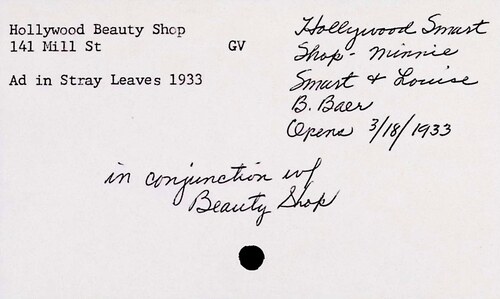 Hollywood Beauty Shop
141 Mill St GV
Ad in Stray Leaves 1933
Hollywood Smart
Shop - Minnie
Smart & Louise
B. Baer
Opens 3/18/1933
in conjunction w/
Beauty Shop